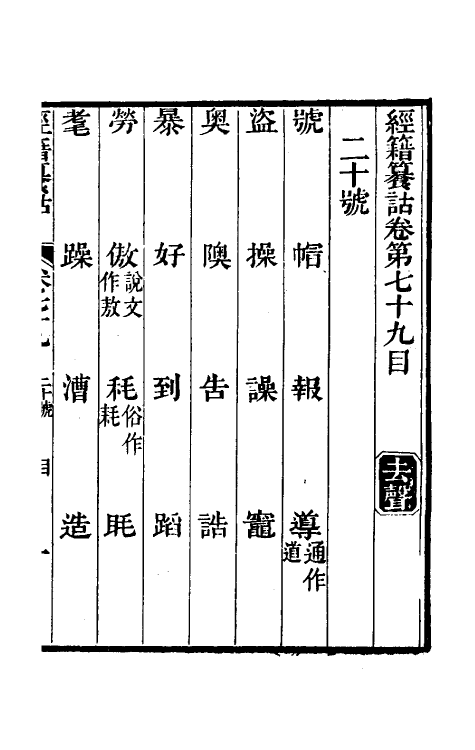 經籍籑詁卷第七十九目 去聲
二十號
號 帽 報 導通作道
盜 操 譟 竈
奥 隩 告 誥
暴 好 到 蹈
勞 傲說文作敖 秏俗作耗 眊
耄 躁 漕 造
經籍籑詁 卷七十九 二十號 目 一